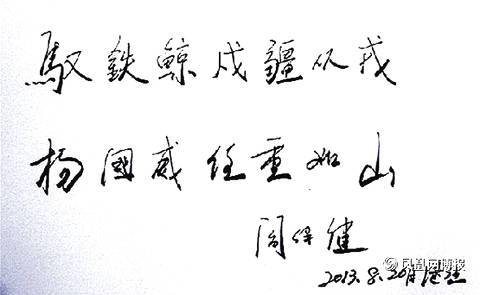 馭鉄鯨戍疆从戎
扬國威任重如山
健
2013.8.20
凤凰网博报